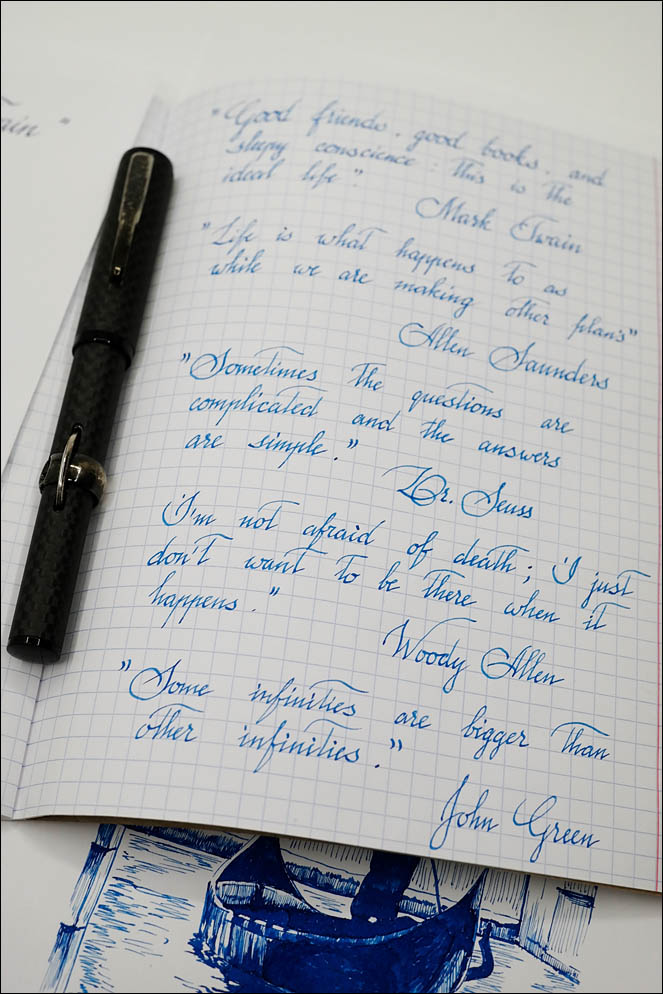 ain"
"Good friends, good books, and
sleepy conscience: this is the
ideal life".
Mark Twain
"Life is what happens to as
while we are making other plans"
Allen Saunders
"Sometimes the questions are
complicated and the answers
are simple."
Dr. Seuss
'I'm not afraid of death; I just
don't want to be there when it
happens."
Woody Allen
"Some infinities are bigger than
other infinities."
John Green